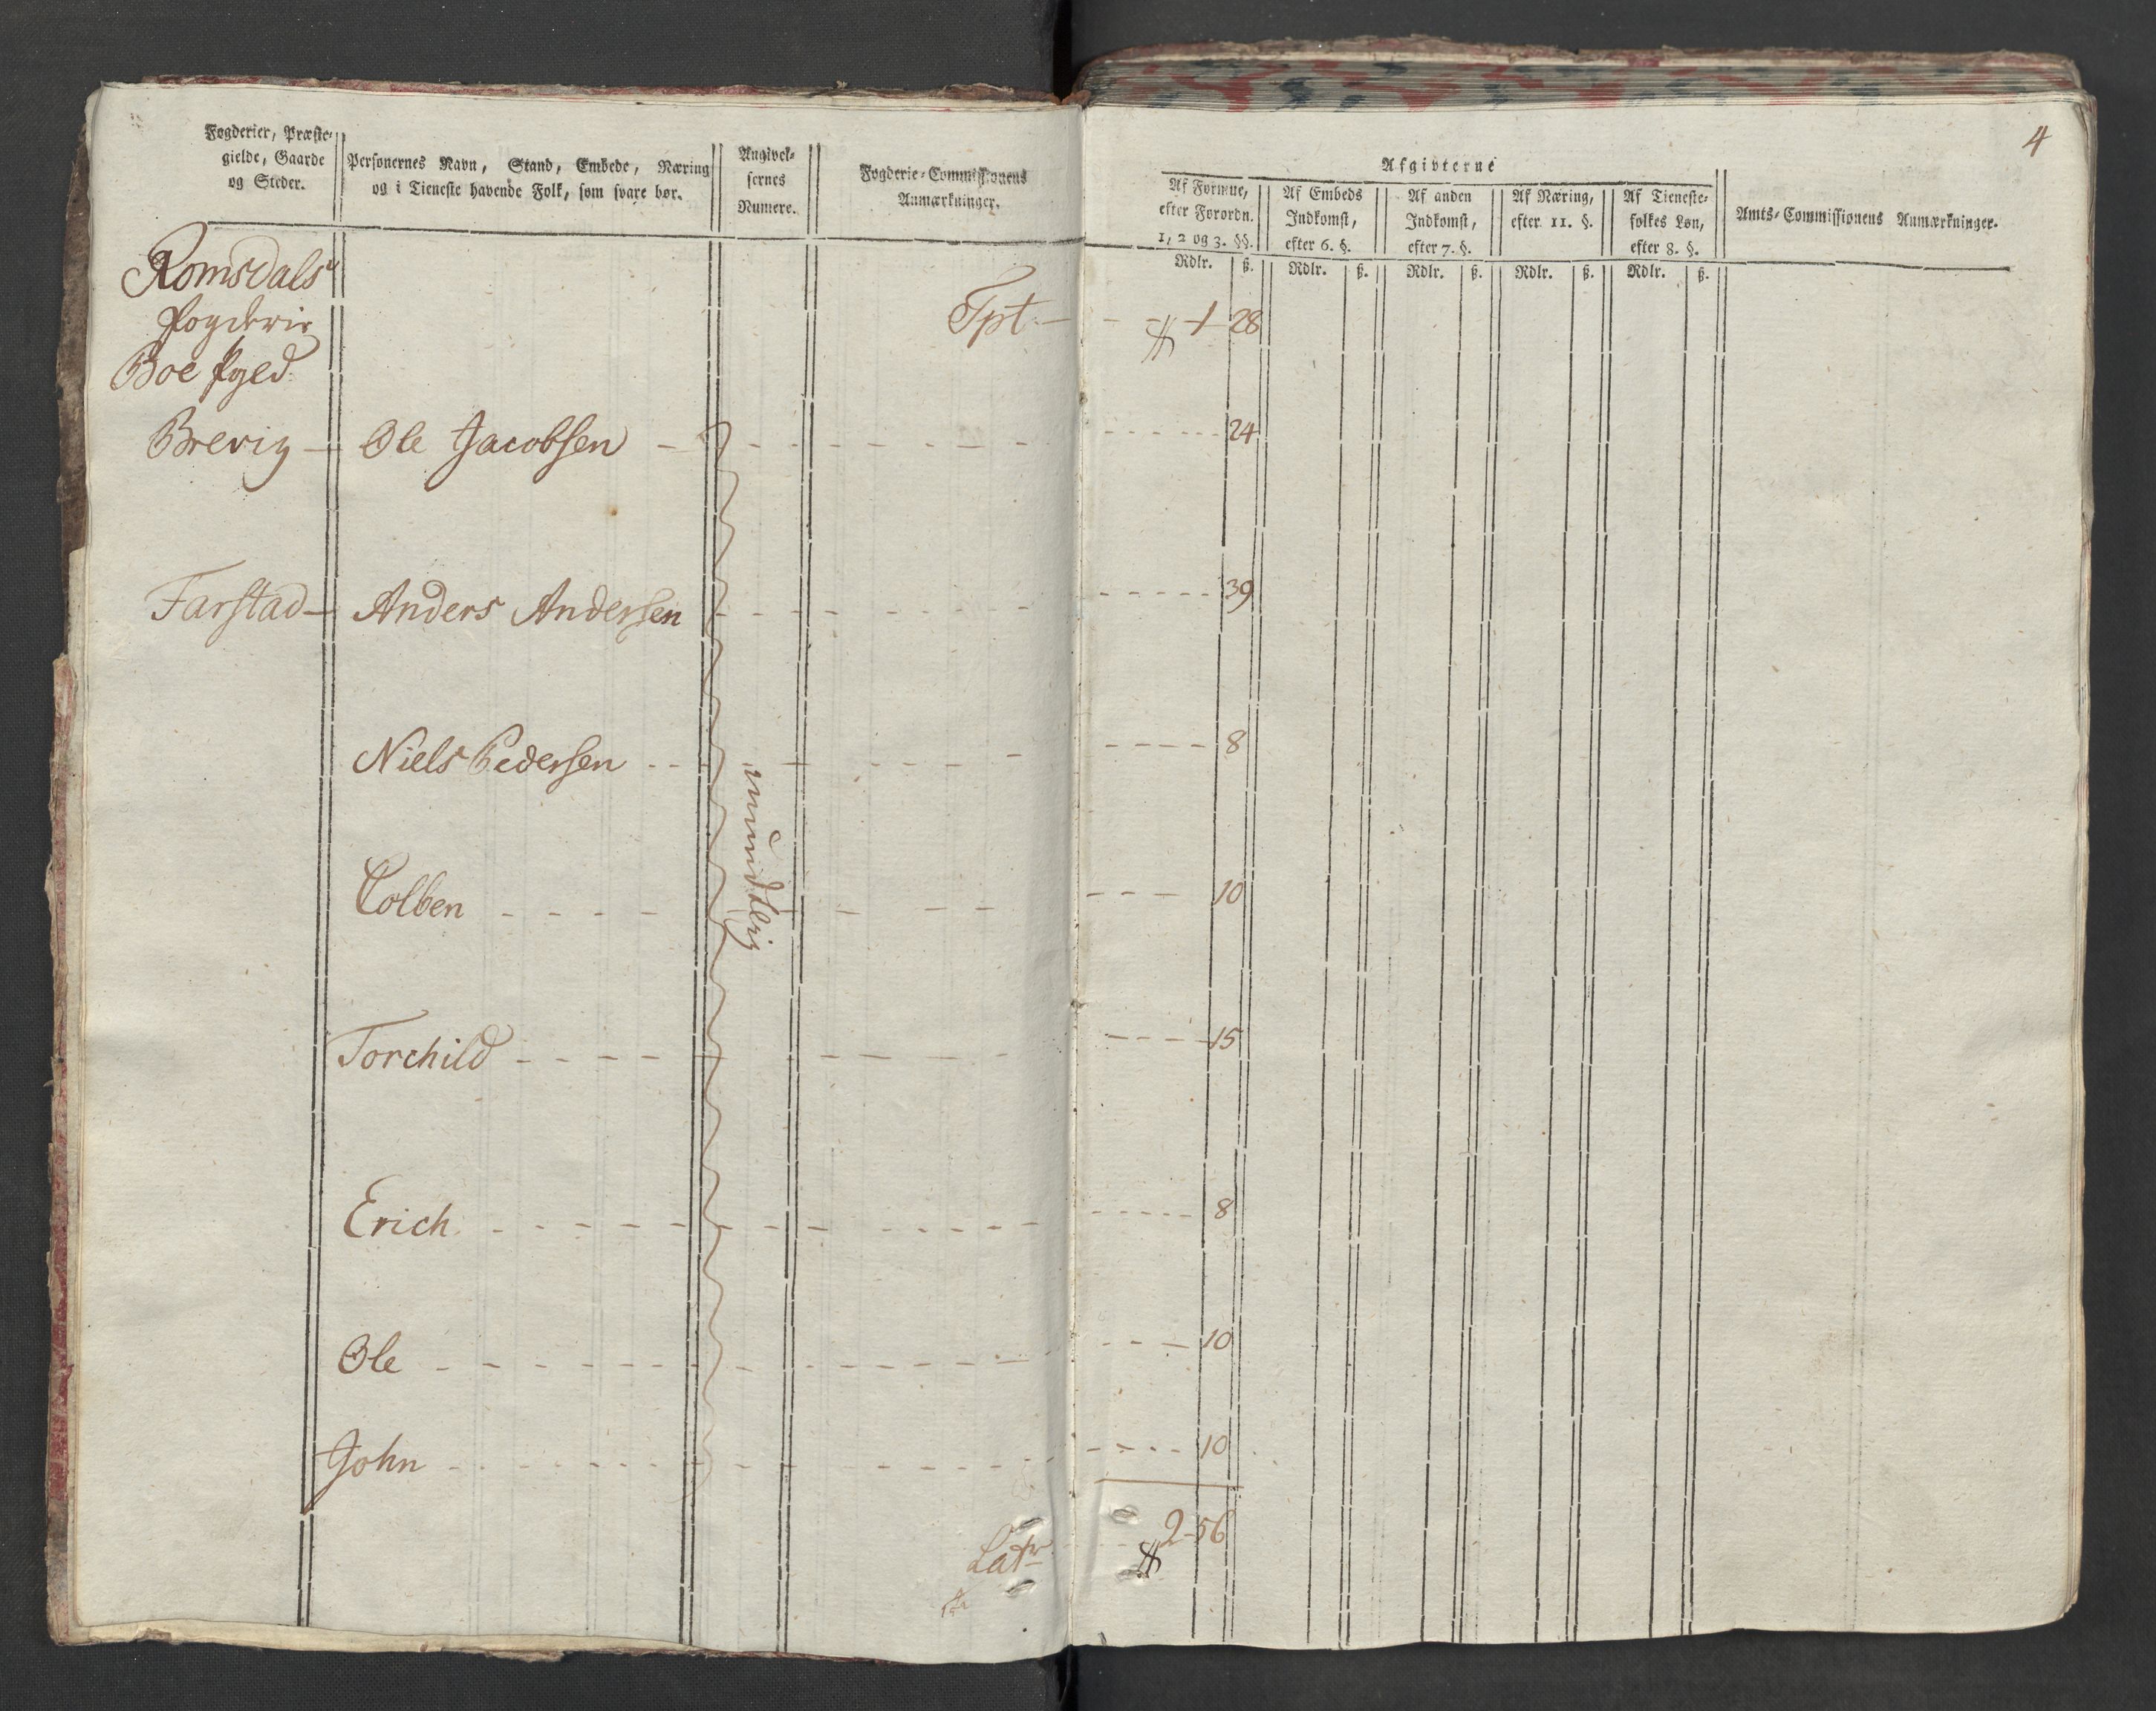 4
Fogderier, Præste-
gielde, Gaarde
og Steder.
Personernes Navn, Stand, Embede, Næring
og i Tieneste havende Folk, som svare bør.
Angivel-
sernes
Numere.
Fogderie-Commissionens
Anmærkninger.
Afgivterne
Af Formue,
efter Forordn.
1, 2 og 3. §§.
Af Embeds
Indkomst,
efter 6. §.
Af anden
Indkomst,
efter 7. §.
Af Næring,
efter 11. §.
Af Tieneste-
folkes Løn,
efter 8. §.
Amts-Commissionens Anmærkninger.
Rdlr. ß. Rdlr. ß. Rdlr. ß. Rdlr. ß. Rdlr. ß.
Romsdals
Fogderie
Tpt. 1 28
Boe Pged
Brevig Ole Jacobsen 24
Farstad Anders Andersen 39
Niels Pedersen 8
mundtlig
Colben 10
Torchild 15
Erich 8
Ole 10
John 10
Latr 2 56